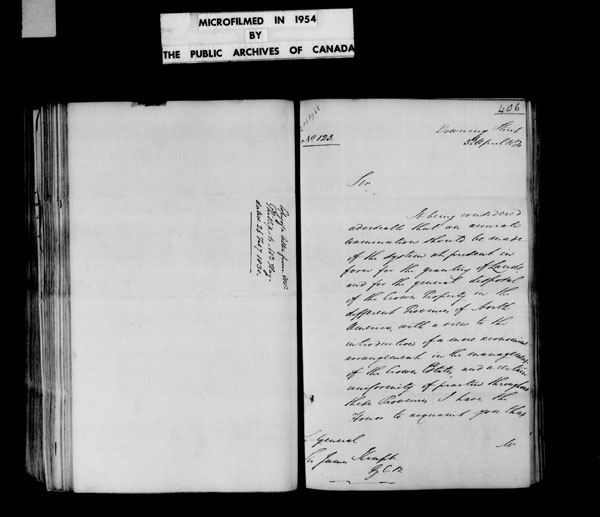 MICROFILMED IN 1954
BY
THE PUBLIC ARCHIVES OF CANADA
Copy of a letter from Mr.
dated 25 Feby 1830.
406
No. 123.
Downing Street
3 April 1830
Sir
It being considered
adviseable that an accurate
examination should be made
of the system at present in
force for the granting of Lands
and for the general disposal
of the Crown Property in the
different Provinces of North
America, with a view to the
introduction of a more economical
arrangement in the management
of the Crown Estate, and a certain
uniformity of practice throughout
these Provinces I have the
Honor to acquaint you that
Lt. General
Sir James Kempt
G.C.B.